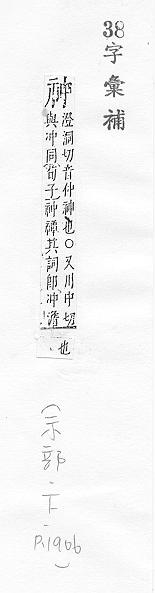 38字彙補
祌
澄洞切音仲神也〇又川中切
與冲同荀子祌禫其詞卽冲澹
也
(示部.下.
P.1906)